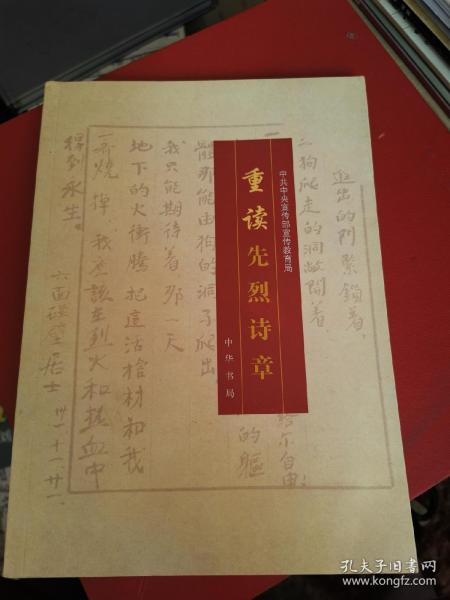 中共中央宣传部宣传教育局
重读先烈诗章
中华书局
進出的門緊鎖着.
狗爬走的洞敞開着.
給尔自由!
的軀
體那能由狗的洞子爬出
我只能期待着 那一天
地下的火衝騰 把這活棺材和我
一齊燒掉,我應該在烈火和熱血中
得到永生。
六面碰壁居士 卅一.十一.廿一.
孔夫子旧书网
www.kongfz.com